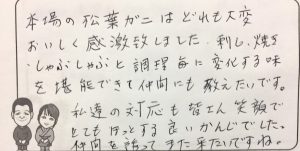 本場の松葉ガニはどれも大変
おいしく感激致しました。刺し、焼き
しゃぶしゃぶと調理毎に変化する味
を堪能できて仲間にも教えたいです。
私達の対応も皆さん笑顔で
とてもほっとする良いかんじでした。
仲間を誘ってまた来たいですね。